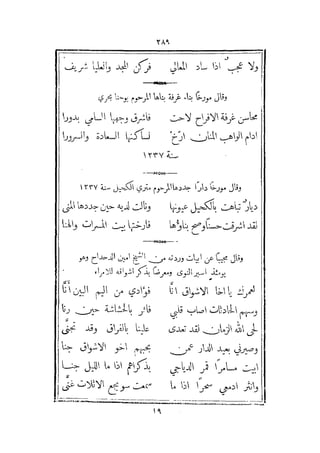 ٢٨٩
ولا عجب اذا ساد المعالي فركن المجد والعليا شريف
وقال مورخًا بناء غرفة بناها المرحوم يوحنا بحري
محاسن غرفة الافراح لاحت فاشرق وجهها السامي بدورا
ادام الواهب المنان ارّخ لساكنها السعادة والسرورا
سنة ١٢٣٧
وقال مورخًا دارًا جددها المرحوم متري الكحيل سنة ١٢٣٧
ديار تباهت بالكحيل عيونها ونالت لديه حين جددها المنى
لقد اشرقت حسنًا وصح بناؤها فارختها بيت المسرات والهنا
وقال مجيبًا عن ابيات وردته من الشيخ امين الدحداح وهو
يومئذٍ اسير النوى ومعرضًا بذكر اشواقه للامراء
لعمرك يا اخا الاشواق انّا فوادي من اليم البين أنّا
وسهم الحادثات اصاب قلبي فاثر بالحشاشة حين رنا
لحى الله الزمان لقد تعدى علينا بالفراق وقد تجنّى
وصيرني بعيد الدار عمن بحبهم اخو الاشواق جنا
ابيت مسامرًا قمر الدياجي بذكراهم اذا ما الليل جنا
وانثر ادمعي سحرًا اذا ما سمعت سويجع الاثلاث غنّى
١٩